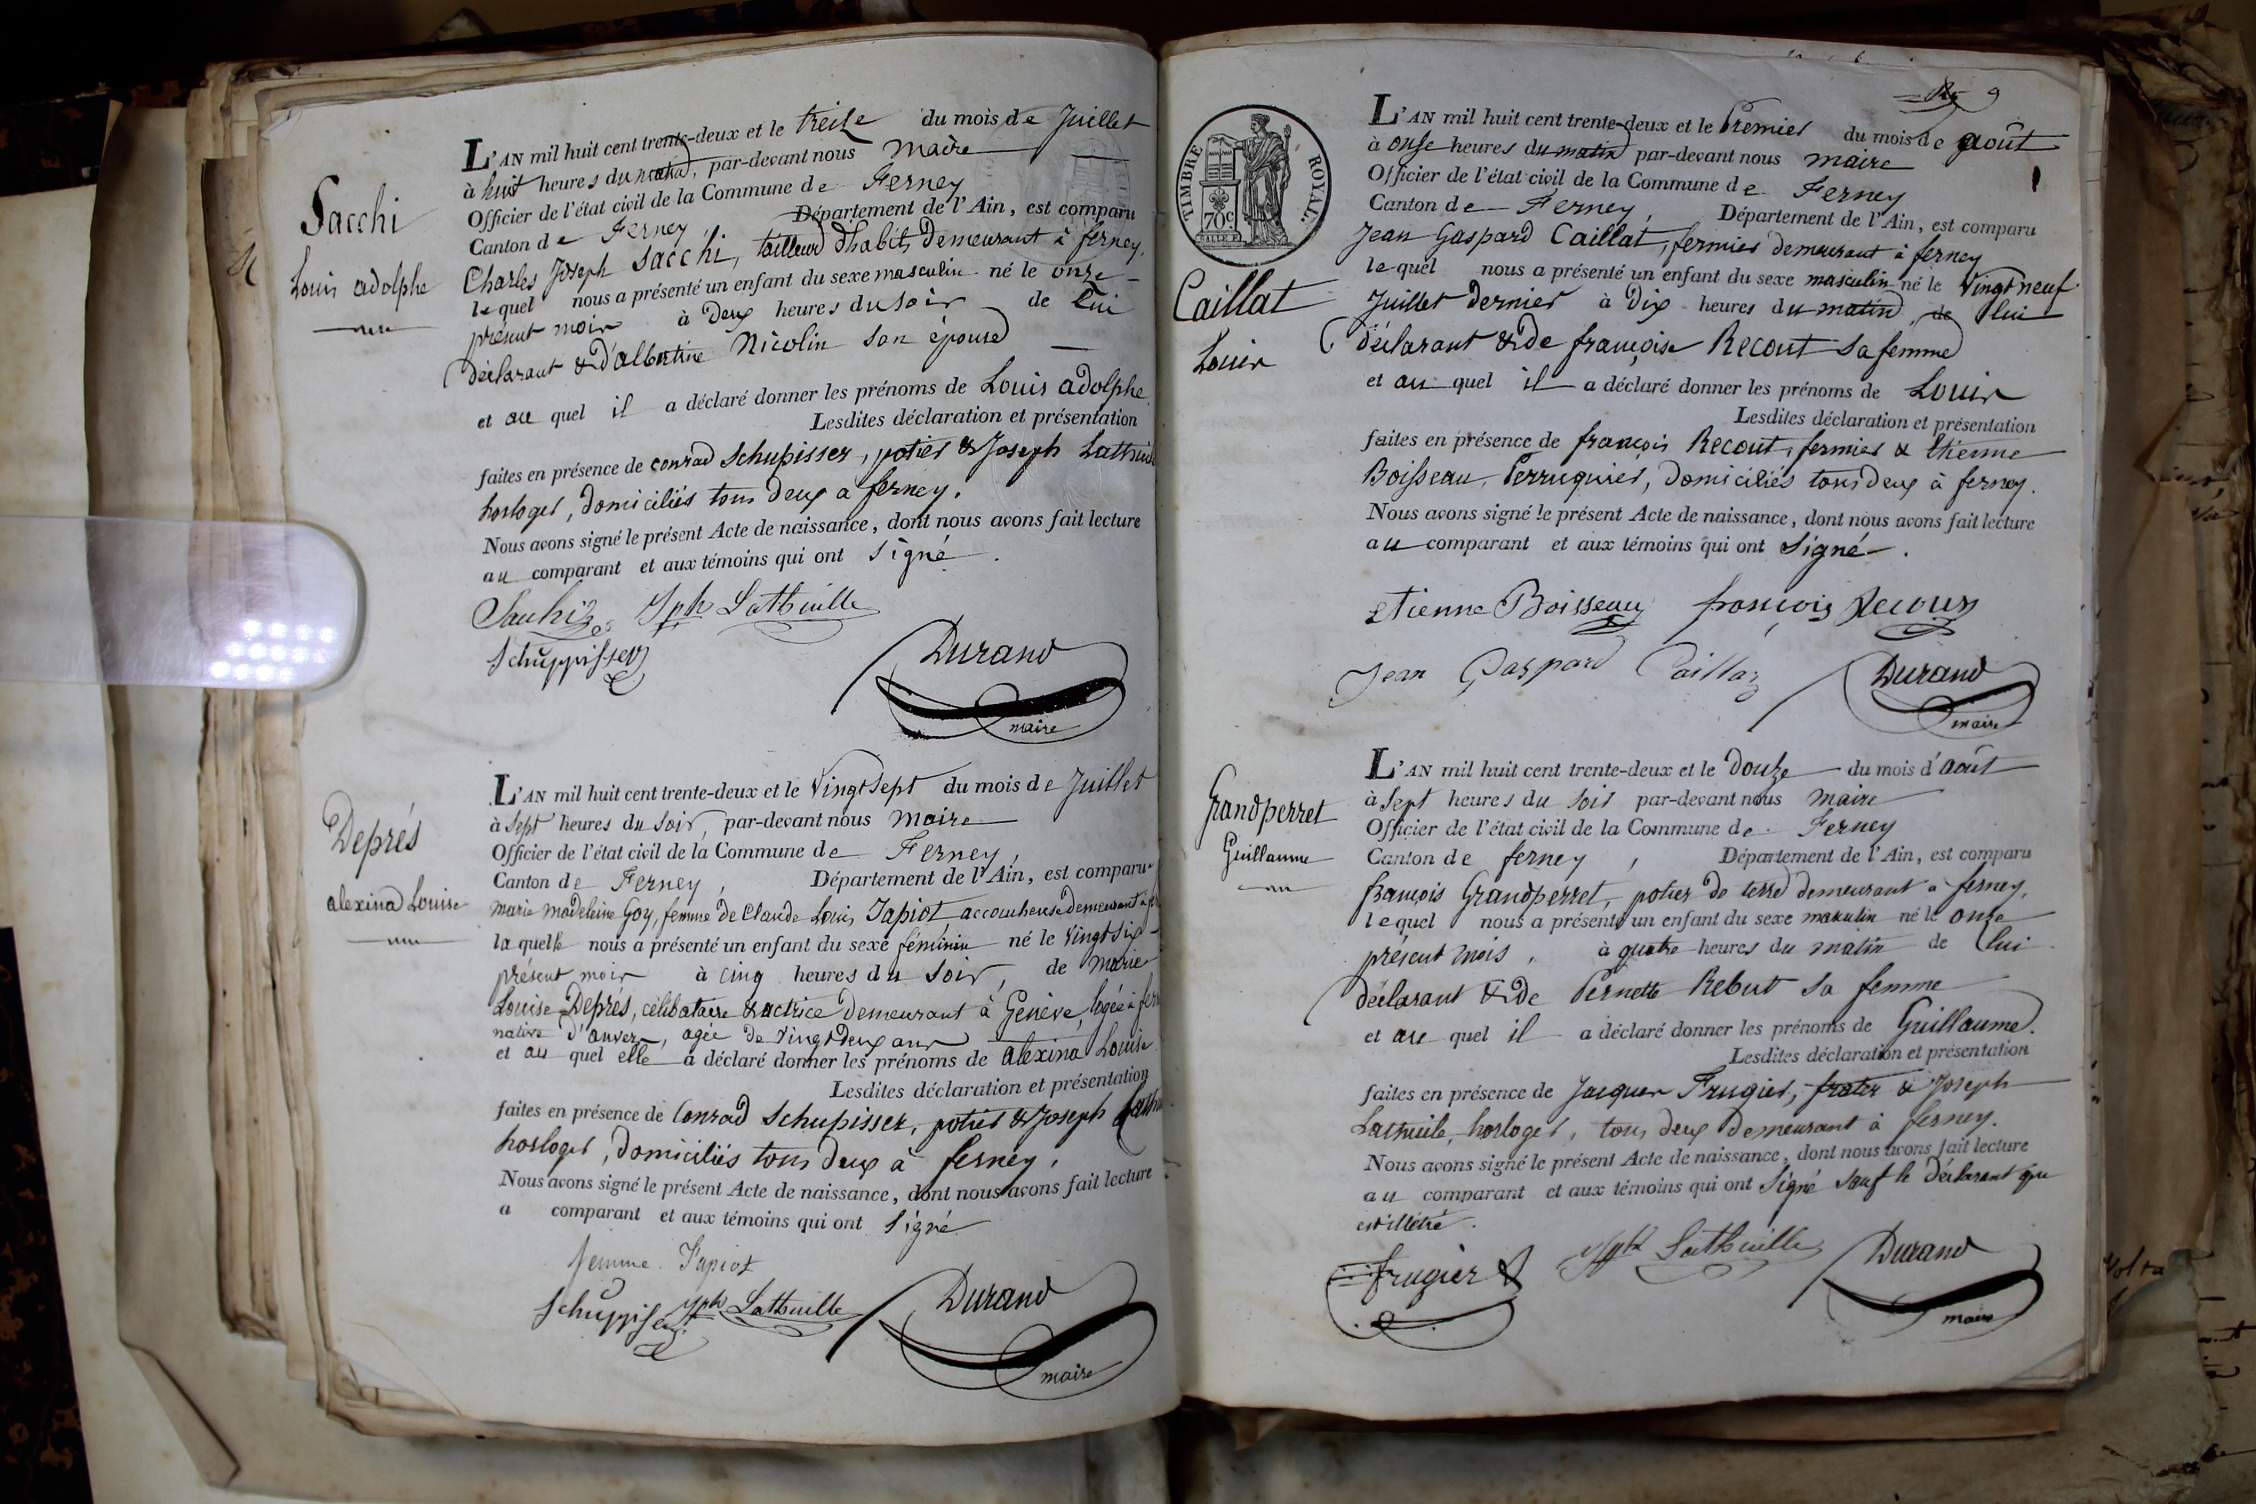 Sacchi
Louis adolphe
L'AN mil huit cent trente-deux et le treize du mois de Juillet
à huit heures du matin, par-devant nous maire
Officier de l'état civil de la Commune de Ferney
Canton de Ferney, Département de l'Ain, est comparu
Charles Joseph Sacchi, tailleur d'habits, demeurant à ferney,
lequel nous a présenté un enfant du sexe masculin né le onze
présent mois à deux heures du soir de lui
déclarant & d'albertine Nicolin son épouse
et au quel il a déclaré donner les prénoms de Louis adolphe.
Lesdites déclaration et présentation
faites en présence de conrad Schupisser, potier & Joseph
horloger, domiciliés tous deux a ferney.
Nous avons signé le présent Acte de naissance, dont nous avons fait lecture
au comparant et aux témoins qui ont signé.
Jph Lathuille
Schuppisser
Durand
maire
Deprés
alexina Louise
L'AN mil huit cent trente-deux et le vingt sept du mois de Juillet
à sept heures du soir, par-devant nous maire
Officier de l'état civil de la Commune de Ferney,
Canton de Ferney, Département de l'Ain, est comparu
marie madeleine Goy, femme de Claude Louis Tapiot accoucheuse demeurant à
laquelle nous a présenté un enfant du sexe féminin né le vingt six
présent mois à cinq heures du soir, de marie
Louise Deprés, célibataire & actrice demeurant à Genève, logée à
native d'anvers, agée de vingt deux ans
et au quel elle a déclaré donner les prénoms de alexina Louise
Lesdites déclaration et présentation
faites en présence de Conrad Schupisser, potier & Joseph
horloger, domiciliés tous deux à ferney,
Nous avons signé le présent Acte de naissance, dont nous avons fait lecture
a comparant et aux témoins qui ont signé
femme Tapiot
Schuppisser Jph Lathuille
Durand
maire
9
TIMBRE ROYAL.
70c.
Caillat
Louis
L'AN mil huit cent trente-deux et le Premier du mois de août
à onse heures du matin par-devant nous maire
Officier de l'état civil de la Commune de Ferney
Canton de Ferney, Département de l'Ain, est comparu
Jean Gaspard Caillat, fermier demeurant à ferney
lequel nous a présenté un enfant du sexe masculin né le vingt neuf
Juillet dernier à dix heures du matin, de lui
déclarant & de françoise Recout sa femme
et au quel il a déclaré donner les prénoms de Louis
Lesdites déclaration et présentation
faites en présence de françois Recout, fermier & Etienne
Boisseau, Perruquier, domiciliés tous deux à ferney.
Nous avons signé le présent Acte de naissance, dont nous avons fait lecture
au comparant et aux témoins qui ont signé.
etienne Boisseau françois Recour
Jean Gaspard Caillat
Durand
maire
Grandperret
Guillaume
L'AN mil huit cent trente-deux et le douze du mois d'août
à sept heures du soir par-devant nous maire
Officier de l'état civil de la Commune de Ferney
Canton de ferney, Département de l'Ain, est comparu
françois Grandperret, potier de terre demeurant à ferney,
lequel nous a présenté un enfant du sexe masculin né le onze
présent mois, à quatre heures du matin de lui
déclarant & de Pernette Rebut sa femme
et au quel il a déclaré donner les prénoms de Guillaume.
Lesdites déclaration et présentation
faites en présence de Jacques Frugier, frater & Joseph
Lathuile, horloger, tous deux demeurant à ferney.
Nous avons signé le présent Acte de naissance, dont nous avons fait lecture
au comparant et aux témoins qui ont signé sauf le déclarant que
est illétré.
frugier
Jph Lathuille
Durand
maire